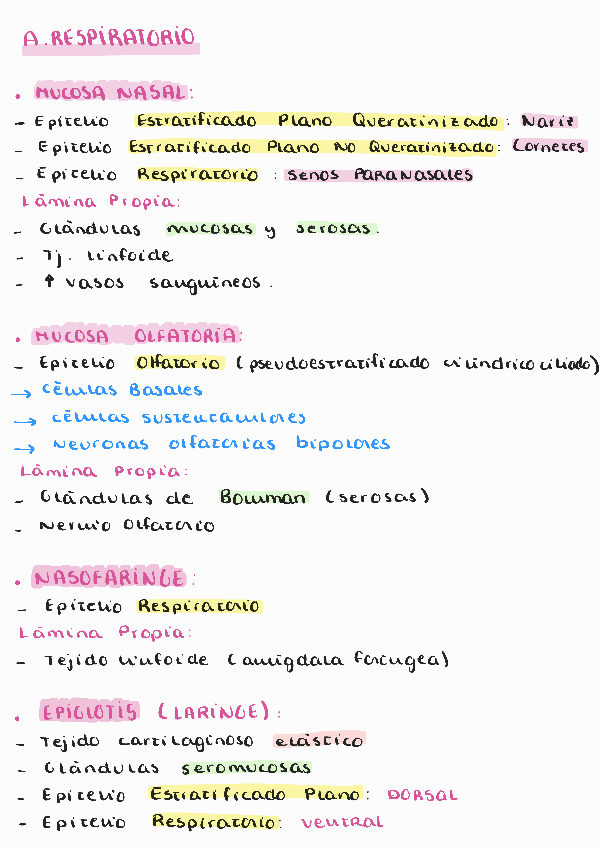 A. RESPIRATORIO
• MUCOSA NASAL:
- Epitelio Estratificado Plano Queratinizado: Nariz
- Epitelio Estratificado Plano No Queratinizado: Cornetes
- Epitelio Respiratorio : senos Paranasales
Lámina Propia:
- Glándulas mucosas y serosas.
- Tj. linfoide
- ↑ vasos sanguíneos.
• MUCOSA OLFATORIA:
- Epitelio Olfatorio (pseudoestratificado cilíndrico ciliado)
→ células Basales
→ células sustentaculares
→ Neuronas olfatorias bipolares
Lámina Propia:
- Glándulas de Bowman (serosas)
- Nervio Olfatorio
• NASOFARINGE:
- Epitelio Respiratorio
Lámina Propia:
- Tejido linfoide (amígdala faríngea)
• EPIGLOTIS (LARINGE):
- Tejido cartilaginoso elástico
- Glándulas seromucosas
- Epitelio Estratificado Plano: DORSAL
- Epitelio Respiratorio: VENTRAL